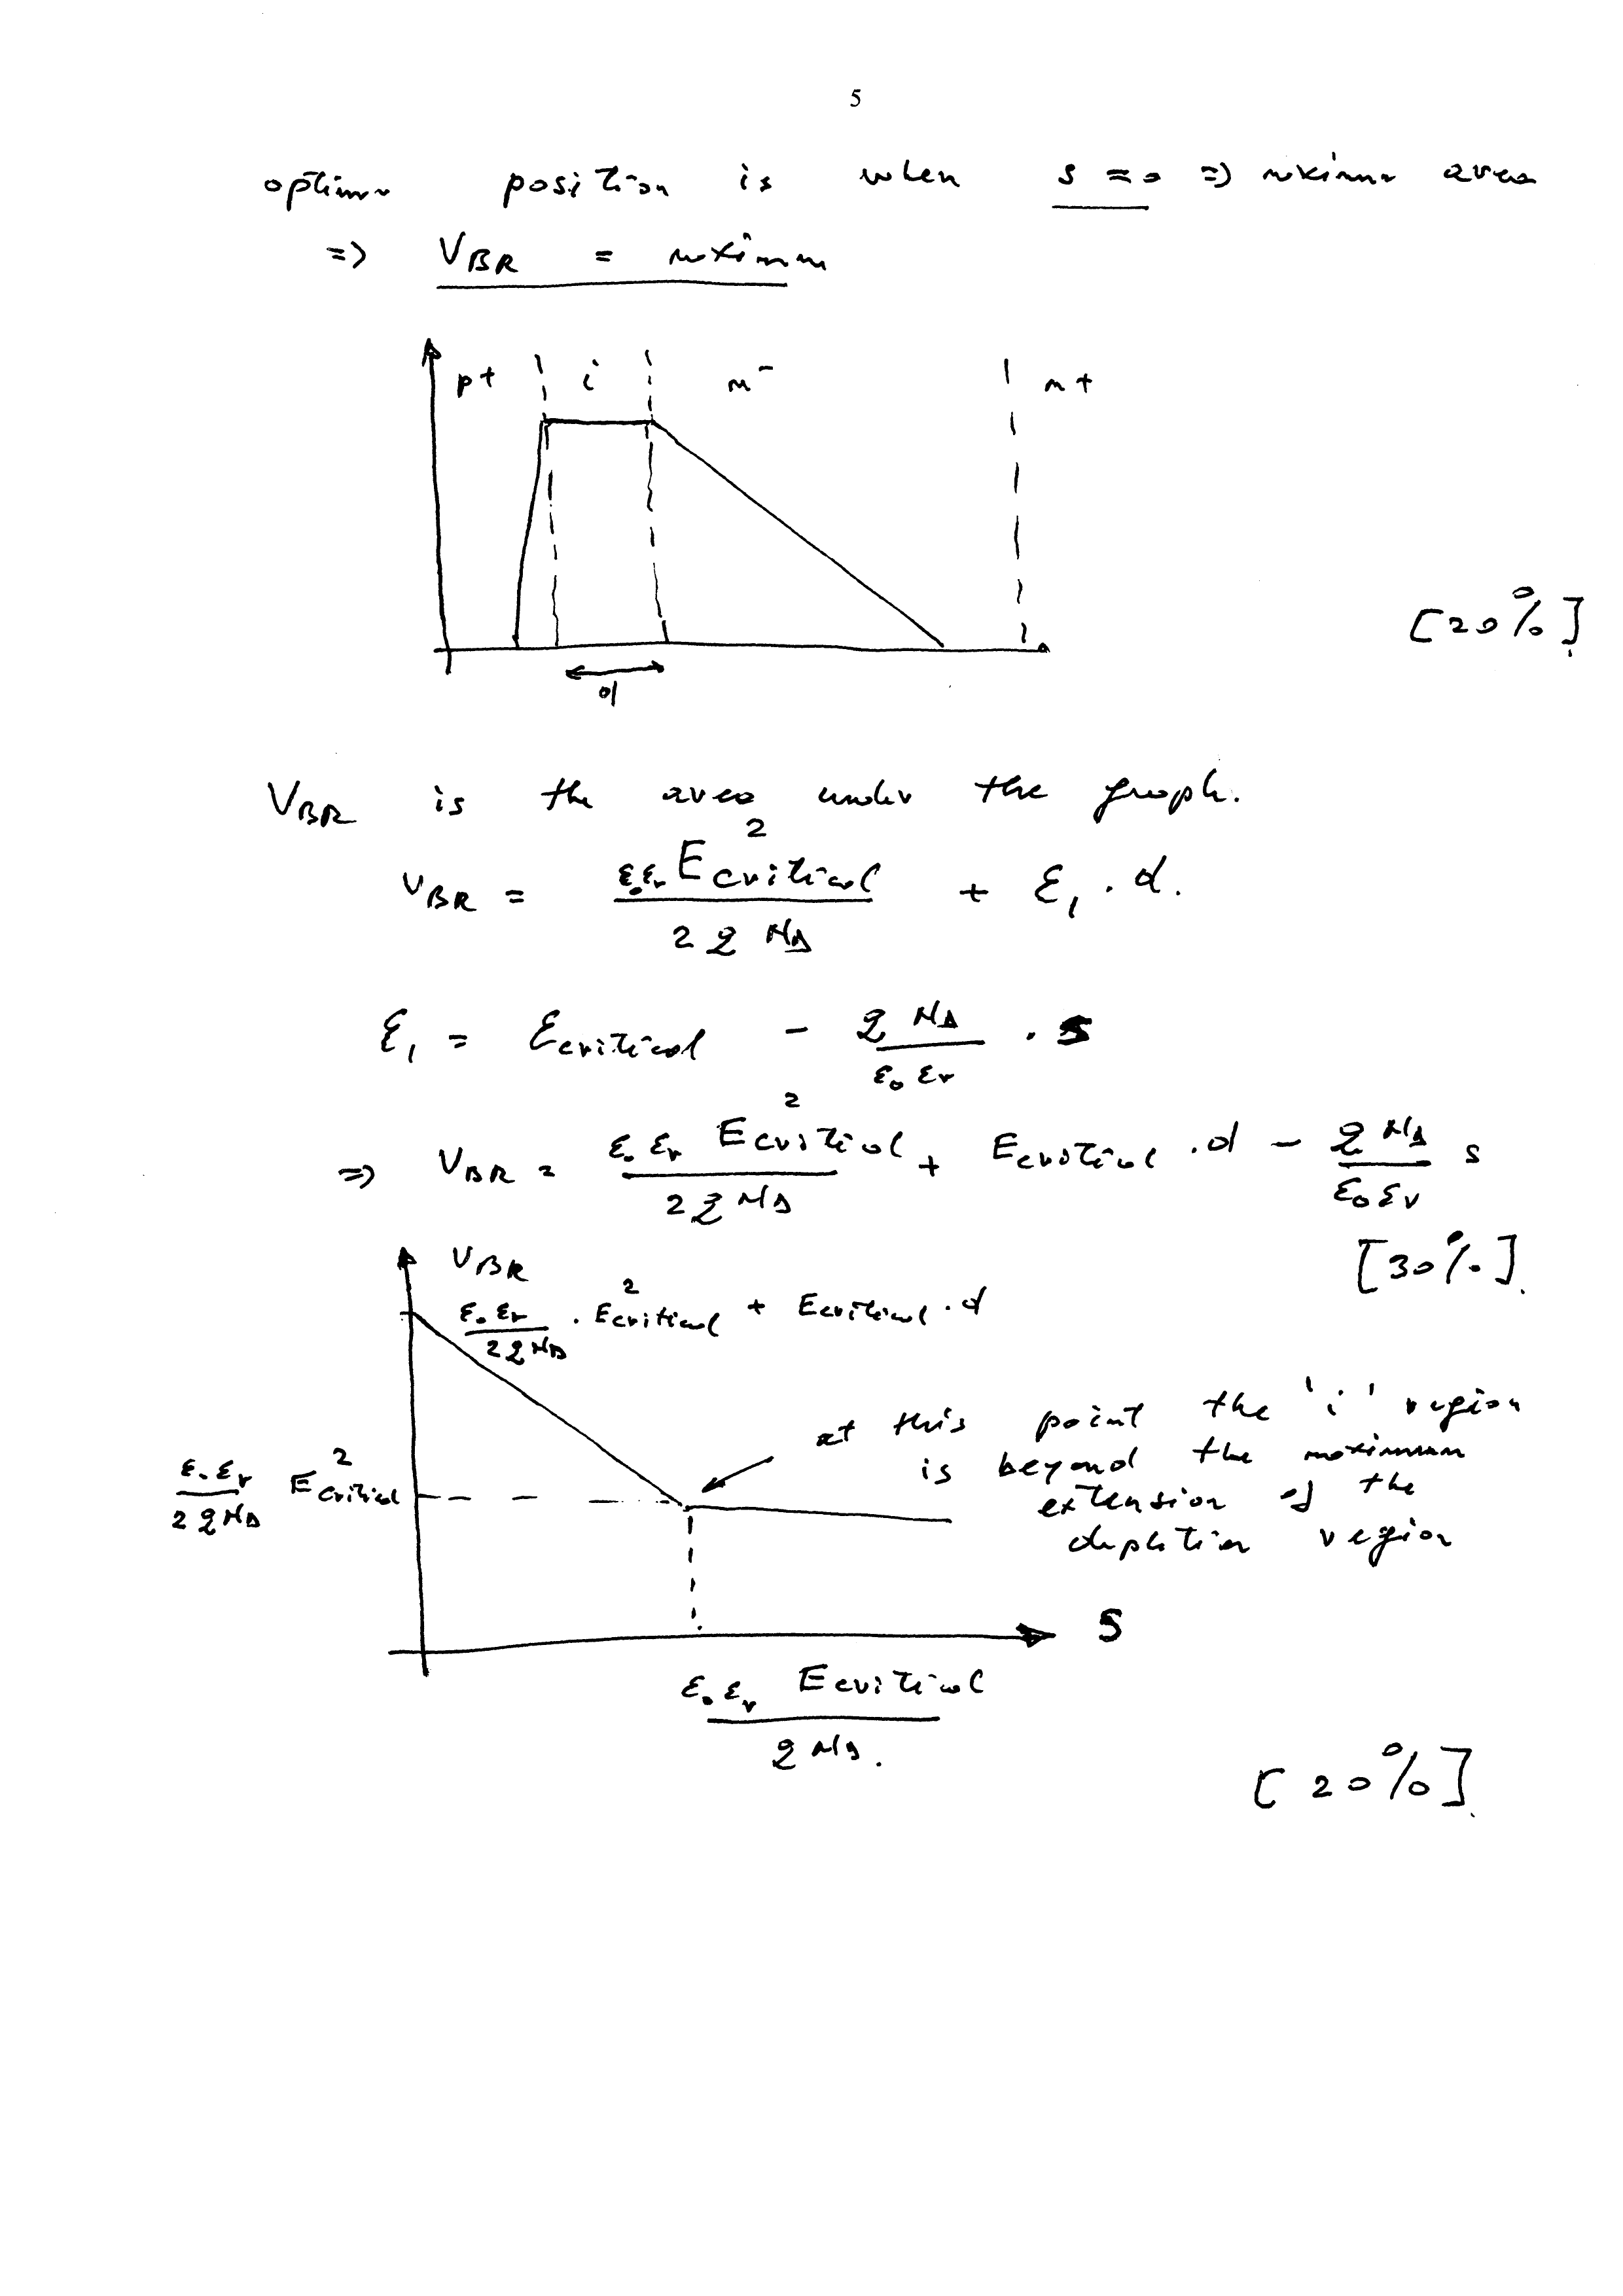 5
optimum position is when s = 0 => maximum area
=> V_BR = maximum
p+ i n⁻ n+
d
[20%]
V_BR is the area under the graph.
V_BR = ε₀εᵣ E²critical / 2 q N_D + ℰ₁ · d.
ℰ₁ = ℰcritical - q N_D / ε₀ εᵣ · s
=> V_BR = ε₀ εᵣ E²critical / 2 q N_D + Ecritical · d - q N_D / ε₀ εᵣ s
[30%].
V_BR
ε₀ εᵣ / 2 q N_D · E²critical + Ecritical · d
at this point the 'i' region
is beyond the maximum
extension of the
depletion region
ε₀ εᵣ / 2 q N_D E²critical
S
ε₀ εᵣ Ecritical / q N_D.
[20%]